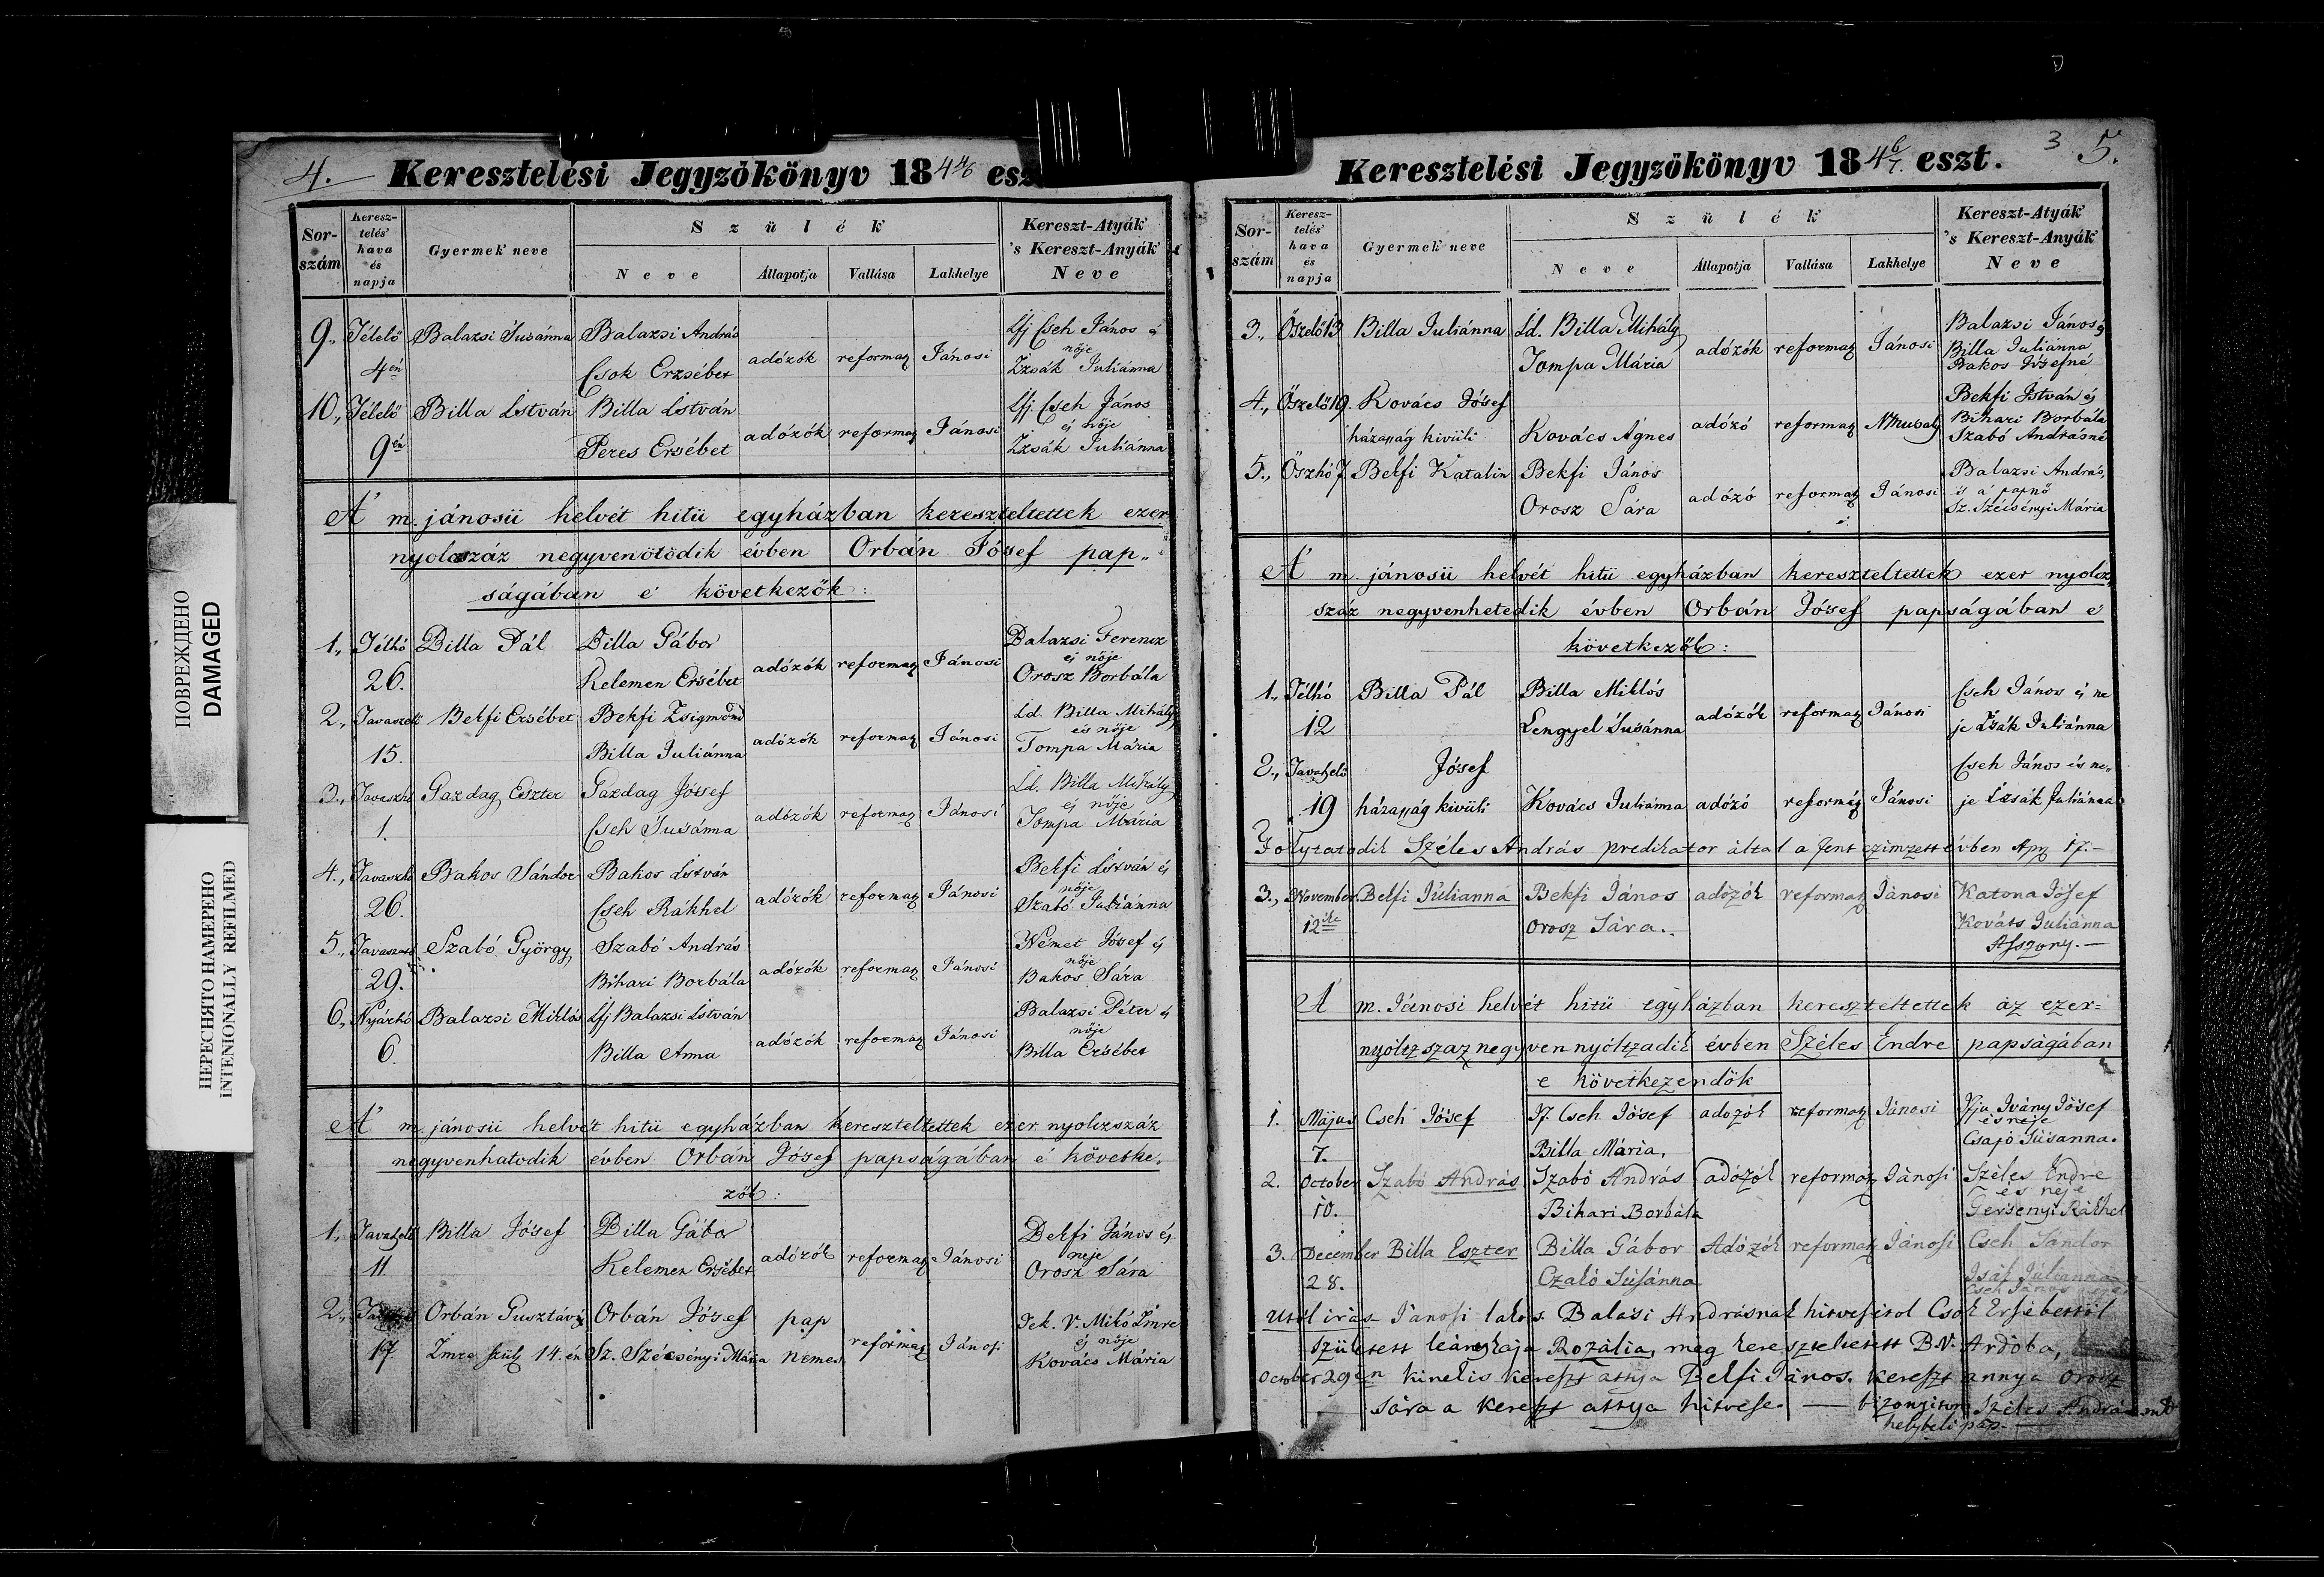 4. Keresztelési Jegyzőkönyv 184 4/6 esz
Sor-szám
Keresz-telés hava és napja
Gyermek neve
Szülék
Neve
Állapotja
Vallása
Lakhelye
Kereszt-Atyák
's Kereszt-Anyák
Neve
9., Télelő Balazsi Susánna Balazsi András Ifj Cseh János és
4én Csok Erzsébet adózók reformaz Jánosi nője
Izsák Juliánna
10., Télelő Billa István Billa István Ifj. Cseh János
9én Peres Ersébet adózók reformaz Jánosi és nője
Izsák Juliánna
A' m. jánosii helvét hitü egyházban kereszteltettek ezer
nyolcszáz negyvenötödik évben Orbán Jósef pap„
ságában e' következők:
1., Télhó Billa Pál Billa Gábor Balazsi Ferencz
26. Kelemen Ersébet adózók reformaz Jánosi és nője
Orosz Borbála
2., Tavaszelő Bekfi Ersébet Bekfi Zsigmond Id. Billa Mihály
15. Billa Juliánna adózók reformaz Jánosi és nője
Tompa Mária
3., Tavaszhó Gazdag Eszter Gazdag Jósef Id. Billa Mihály
1. Cseh Susánna adózók reformaz Jánosi és nője
Tompa Mária
4., Tavaszhó Bakos Sándor Bakos István Bekfi István és
26. Cseh Rákhel adózók reformaz Jánosi nője
Szabó Juliánna
5., Szabó György Szabó András Német Jósef és
29. Bihari Borbála adózók reformaz Jánosi nője
Bakos Sára
6., Nyárhó Balazsi Miklós Ifj Balazsi István Balazsi Péter és
6. Billa Anna adózók reformaz Jánosi nője
Billa Ersébet
A' m. jánosii helvét hitü egyházban kereszteltettek ezer nyolczszáz
negyvenhatodik évben Orbán Jósef papságában é követke„
zők:
1., Billa Jósef Billa Gábor Bekfi János és
11. Kelemen Ersébet adózók reformaz Jánosi neje
Orosz Sára
2., Orbán Gusztáv Orbán Jósef pap Tek. V. Mikó Imre
17 Imre szül. 14.én Sz. Szécsényi Mária nemes reformaz Jánosi és nője
Kovács Mária
ПОВРЕЖДЕНО
DAMAGED
ПЕРЕСНЯТО НАМЕРЕНО
INTENIONALLY REFILMED
Keresztelési Jegyzőkönyv 184 6/7. eszt. 3 5.
Sor-szám
Keresz-telés hava és napja
Gyermek neve
Szülék
Neve
Állapotja
Vallása
Lakhelye
Kereszt-Atyák
's Kereszt-Anyák
Neve
3., Őszelő 13 Billa Juliánna Id. Billa Mihály Balazsi János és
Tompa Mária adózók reformaz Jánosi Billa Juliánna
Bakos Jósefné
4., Őszelő 19. Kovács Jósef Bekfi István és
házasság kivüli Kovács Ágnes adózó reformaz Bihari Borbála
Szabó Andrásné
5., Őszhó 7. Bekfi Katalin Bekfi János Balazsi András
Orosz Sára adózó reformaz Jánosi és a' papnő
Sz. Szécsényi Mária
A' m. jánosii helvét hitü egyházban kereszteltettek ezer nyolcz„
száz negyvenhetedik évben Orbán Jósef papságában e'
következők:
1., Télhó Billa Pál Billa Miklós Cseh János és ne
12 Lengyel Susánna adózók reformaz Jánosi je Izsák Juliánna
2., Jósef Cseh János és ne„
19 házasság kivüli Kovács Juliánna adózó reformáz Jánosi je Izsák Juliánna
Folytatodik Széles András predikator által a fent czimzett évben Apr 17.–
3., November Bekfi Júlianna Bekfi János adózók reformaz Jánosi Katona Jósef
12ik Orosz Sára.. Kováts Juliánna
Asszony.–
A' m. Jánosi helvét hitü egyházban kereszteltettek az ezer=
nyoltzszaz negyven nyóltzadik évben Széles Endre papságában
e következendők
1. Május Cseh Jósef If. Cseh Jósef adozók reformaz Jánosi Ifju Ivány Jósef
7. Billa Mária, és neje
Csapó Súsanna.
2. October Szabó András Szabó András adózók reformaz Jánosi Széles Endre
10. Bihari Borbála és neje
Gersenyi Rákhel
3. December Billa Eszter Billa Gábor Adózók reformaz Jánosi Cseh Sándor
28. Czakó Súsánna Isák Júlianna
Cseh János
Utol irás Jánosi lakos Balási Andrásnak hitvesitol Csok Ersébettöl
született leánykája Rozália, meg kereszteltetett B.V. Ardóba,
October 29én kinekis kereszt attya Bekfi János. kereszt annya Orosz
Sára a kereszt attya hitvese. — bizonyitom Széles András
helybeli pap.–